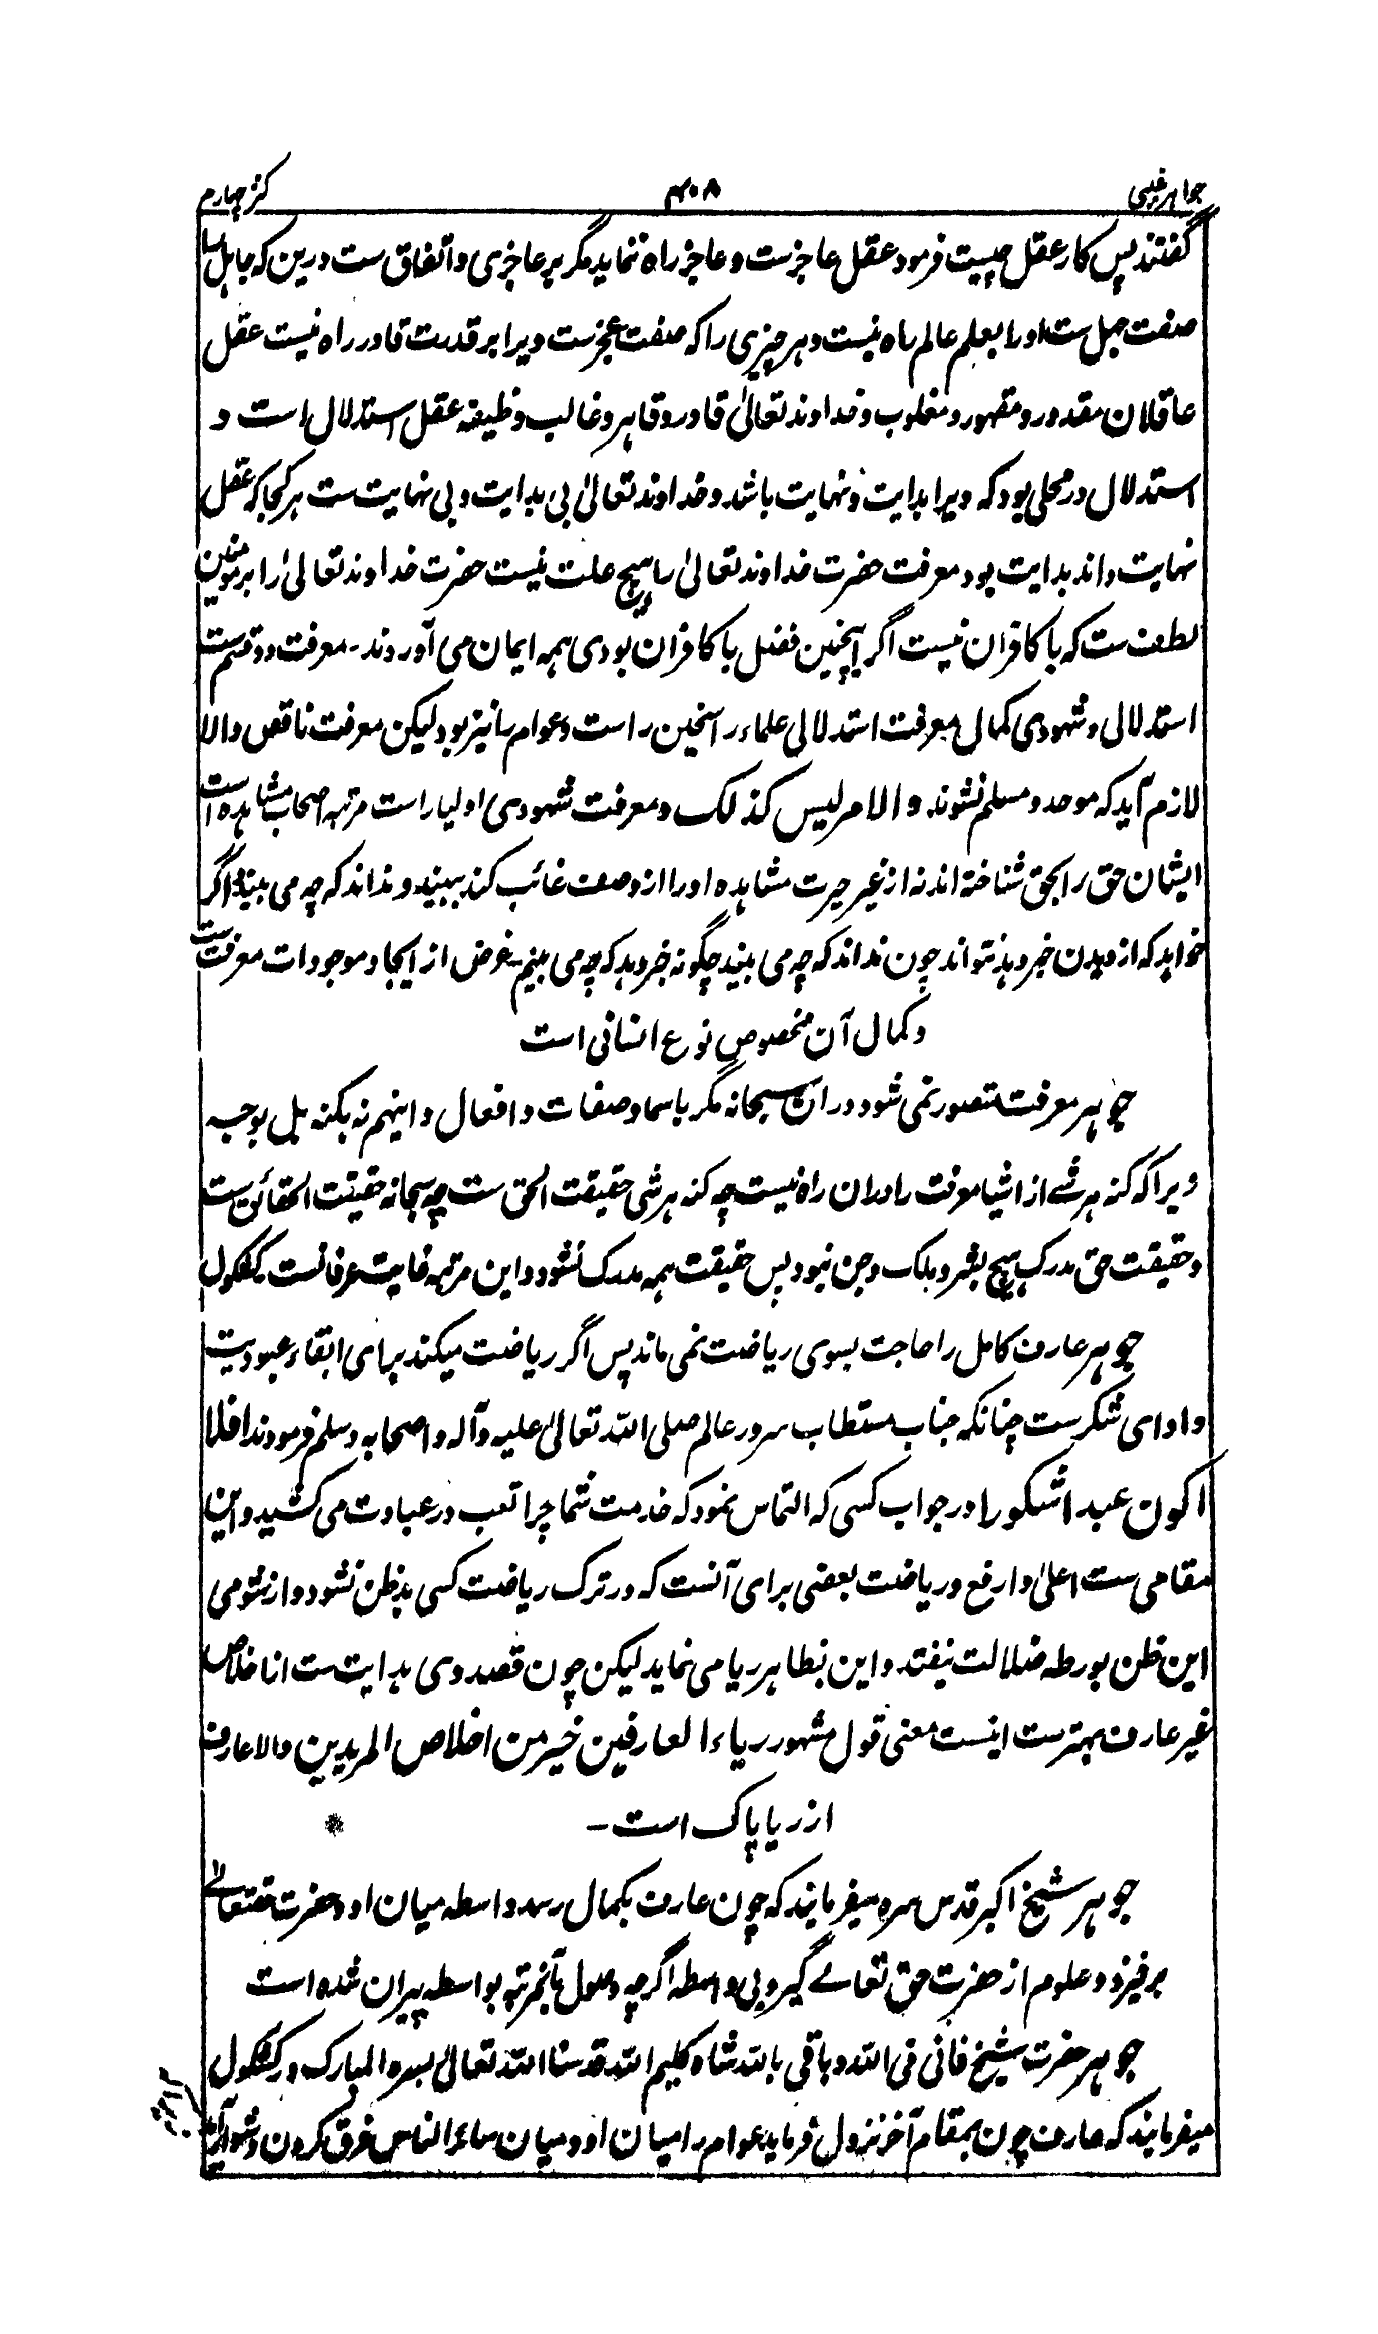 جواہر غیبی ۴۰۸ کنز چہارم
گفتند پس کار عقل چیست فرمود عقل عاجزست و عاجز راہ ننماید مگر بر عاجزی و اتفاق ست درین کہ جاہل را
صفت جہل ست اورا بعلم عالم راہ نیست و ہر چیزی را کہ صفت عجزست ویرا بر قدرت قادر راہ نیست عقل
عاقلان مقدور و مقہور و مغلوب و خداوند تعالیٰ قادر و قاہر و غالب وظیفہ عقل استدلال است و
استدلال در محلی بود کہ ویرا بدایت و نہایت باشد و خداوند تعالیٰ بی بدایت و بی نہایت ست ہر کجا کہ عقل
نہایت داند بدایت بود معرفت حضرت خداوند تعالیٰ را ہیچ علت نیست حضرت خداوند تعالیٰ را بر مومنین
لطف ست کہ با کافران نیست اگر اینچنین فضل با کافران بودی ہمہ ایمان می آوردند ۔ معرفت دو قسم ست
استدلالی و شہودی کمال معرفت استدلالی علماء راسخین راست و عوام را نیز بود لیکن معرفت ناقص والا
لازم آید کہ موحد و مسلم نشوند و الامر لیس کذلک و معرفت شہودی اولیا راست مرتبہ اصحاب مشاہدہ است
ایشان حق را بحق شناختہ اند نہ از غیر حیرت مشاہدہ اورا از وصف غائب کند ببیند و نداند کہ چہ می بیند و اگر
خواہد کہ از دیدن خبر دہد نتواند چون نداند کہ چہ می بیند چگونہ خبر دہد کہ چہ می بینم ۔ غرض از ایجاد موجودات معرفت ست
و کمال آن مخصوص نوع انسانی است
جوہر معرفت متصور نمی شود در آن سبحانہ مگر باسما و صفات و افعال و اینہم نہ بکنہ بل بوجہ
ویرا کہ کنہ ہر شے از اشیا معرفت را دران راہ نیست چہ کنہ ہر شی حقیقت الحق ست چہ سبحانہ حقیقت الحقائق ست
و حقیقت حق مدرک ہیچ بشر و ملک و جن نبود پس حقیقت ہمہ مدرک نشود و این مرتبہ غایت عرفانست کشکول
جوہر عارف کامل را حاجت بسوی ریاضت نمی ماند پس اگر ریاضت میکند برای ابقاء عبودیت
و ادای شکرست چنانکہ جناب مستطاب سرور عالم صلی اللہ تعالیٰ علیہ وآلہ واصحابہ وسلم فرمودند افلا
اکون عبدا شکورا در جواب کسی کہ التماس نمود کہ خدمت شما چرا تعب در عبادت می کشید و این
مقامی ست اعلیٰ و ارفع و ریاضت بعضی برای آنست کہ در ترک ریاضت کسی بدظن نشود و از شومی
این ظن بورطہ ضلالت نیفتد و این بظاہر ریا می نماید لیکن چون قصد وی ہدایت ست از اخلاص
غیر عارف بہترست اینست معنی قول مشہور ریاء العارفین خیر من اخلاص المریدین والا عارف
از ریا پاک است ۔
جوہر شیخ اکبر قدس سرہ میفرمایند کہ چون عارف بکمال رسد واسطہ میان او و حضرت حقتعالےٰ
برخیزد و علوم از حضرت حق تعالے گیرد بی واسطہ اگرچہ وصول بآنمرتبہ بواسطہ پیران شدہ است
جوہر حضرت شیخ فانی فی اللہ و باقی باللہ شاہ کلیم اللہ قدسنا اللہ تعالیٰ بسرہ المبارک در کشکول
میفرمایند کہ عارف چون بمقام آخر نزول فرماید عوام را میان او و میان سائر الناس فرق کردن دشوار آید